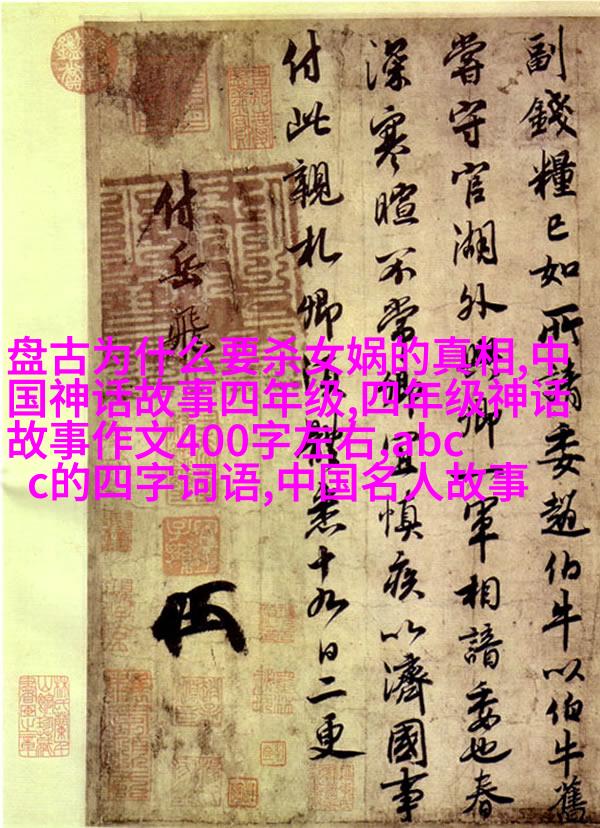 副錢糧已如所請委趙伯牛以伯牛舊
嘗守官湖外與卿一軍相諳委也春
深寒暄不常卿宜慎疾以濟國事
付此親札卿須體悉十九日二更
付岳飛
盘古为什么要杀女娲的真相,中
国神话故事四年级,四年级神话
故事作文400字左右,abc
c的四字词语,中国名人故事